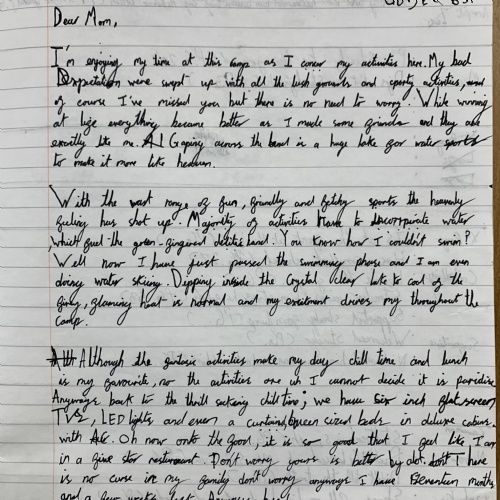 Dear Mom,
I'm enjoying my time at this camp as I coner my activities here. My bad
Expectation were swept up with all the lush grounds and sporty activities, and
of course I've missed you but there is no need to worry. While running
at life everything became better as I made some friends and they are
exactly like me. Gaping across the band is a huge lake for water sports
to make it more like heaven.
With the vast range of fun, friendly and fethy sports the heavenly
feeling has shot up. Majority of activities have to incorpirate water
which fuel the green-fingered land. You know how I couldn't swim?
Well now I have just passed the swimming phase and I am even
doing water skiing. Dipping inside the crystal clear lake to cool of the
firey, gleaming heat is normal and my exictment drives my throughout the
camp.
Although the fantasic activities make my day chill time and lunch
is my favourite, no the activities one uh I cannot decide it is paridise
Anyways back to the thrill seeking chill time; we have six inch flat screen
TVs, LED lights and even a curtained queen sized beds in deluxe cabins
with AC. Oh now onto the food, it is so good that I feel like I'm
in a five star resturaunt. Don't worry yours is better by alot. don't there
is no curse in my family don't worry anyways I have Eleventeen months
and a few weeks left.